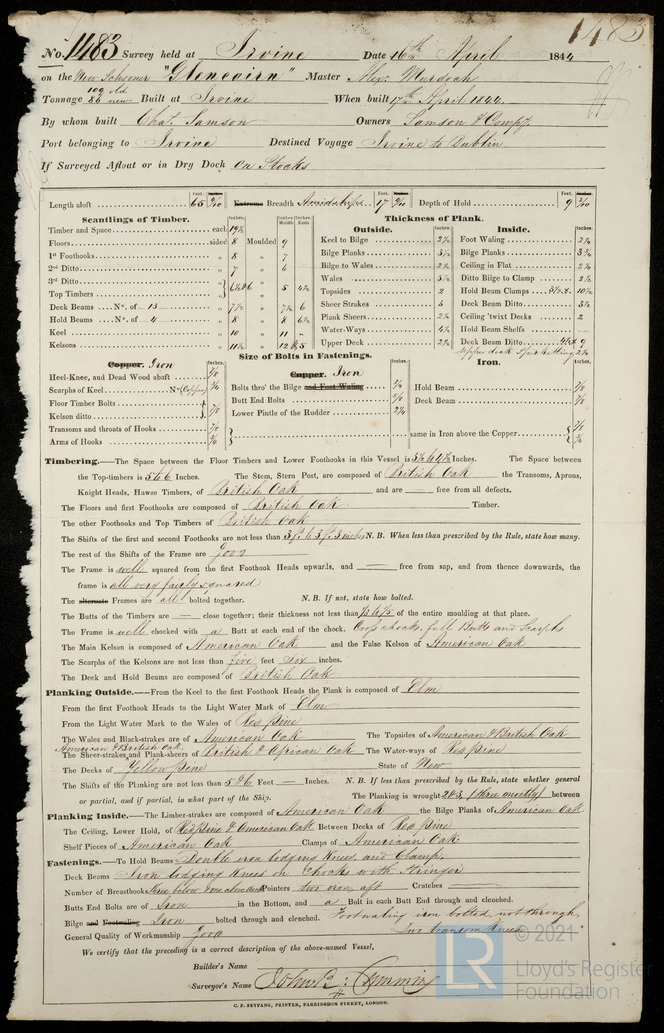 1483
No. 1483 Survey held at Irvine Date 16th April 1844
on the New Schooner "Glencairn" Master Alexr Murdoch
Tonnage 109 old 86 new Built at Irvine When built 17th April 1844
By whom built Chas. Samson Owners Samson & Compy
Port belonging to Irvine Destined Voyage Irvine to Dublin
If Surveyed Afloat or in Dry Dock On Stocks
Length aloft 65 Extreme Breadth Amidships 17 Depth of Hold 9
Scantlings of Timber. Thickness of Plank.
Outside. Inside.
Timber and Space each Keel to Bilge Foot Waling
Floors sided 8 Moulded 9 Bilge Planks Bilge Planks
1st Foothooks „ 8 „ 7 Bilge to Wales Ceiling in Flat
2nd Ditto „ 7 „ 6 Wales Ditto Bilge to Clamp
3rd Ditto Topsides 2 Hold Beam Clamps
Top Timbers Sheer Strakes 3 Deck Beam Ditto
Deck Beams No. of 13 Plank Sheers Ceiling 'twixt Decks 2
Hold Beams No. of 4 „ 8 „ 8 Water-Ways Hold Beam Shelfs —
Keel „ 10 „ 11 „ Upper Deck Deck Beam Ditto
Kelsons Upper deck Spirketting
Size of Bolts in Fastenings.
Copper. Iron Copper. Iron Iron.
Heel-Knee, and Dead Wood abaft Bolts thro' the Bilge and Foot Waling Hold Beam
Scarphs of Keel No (Copper) Butt End Bolts Deck Beam
Floor Timber Bolts Lower Pintle of the Rudder
Kelson ditto
Transoms and throats of Hooks same in Iron above the Copper
Arms of Hooks
Timbering.—The Space between the Floor Timbers and Lower Foothooks in this Vessel is Inches. The Space between
the Top-timbers is 5 & 6 Inches. The Stem, Stern Post, are composed of British Oak the Transoms, Aprons,
Knight Heads, Hawse Timbers, of British Oak and are — free from all defects.
The Floors and first Foothooks are composed of British Oak Timber.
The other Foothooks and Top Timbers of British Oak
The Shifts of the first and second Foothooks are not less than N. B. When less than prescribed by the Rule, state how many.
The rest of the Shifts of the Frame are Good
The Frame is well squared from the first Foothook Heads upwards, and — free from sap, and from thence downwards, the
frame is all very fairly squared
The alternate Frames are all bolted together. N. B. If not, state how bolted.
The Butts of the Timbers are — close together; their thickness not less than of the entire moulding at that place.
The Frame is well chocked with a Butt at each end of the chock. Cross chocks, full Butts and Scarphs
The Main Kelson is composed of American Oak and the False Kelson of American Oak
The Scarphs of the Kelsons are not less than five feet six inches.
The Deck and Hold Beams are composed of British Oak
Planking Outside.—From the Keel to the first Foothook Heads the Plank is composed of Elm
From the first Foothook Heads to the Light Water Mark of Elm
From the Light Water Mark to the Wales of Red pine
The Wales and Black-strakes are of American Oak The Topsides of American & British Oak
American & British Oak
The Sheer-strakes and Plank-sheers of British & African Oak The Water-ways of Red pine
The Decks of Yellow pine State of New
The Shifts of the Planking are not less than 5 & 6 Feet — Inches. N. B. If less than prescribed by the Rule, state whether general
or partial, and if partial, in what part of the Ship. The Planking is wrought 2 & 3 (three mostly) between
Planking Inside.—The Limber-strakes are composed of American Oak the Bilge Planks of American Oak
The Ceiling, Lower Hold, of Red pine & American Oak Between Decks of Red pine
Shelf Pieces of American Oak Clamps of American Oak
Fastenings.—To Hold Beams Double iron lodging Knees, and Clamp.
Deck Beams Iron lodging Knees on Chocks with Stringer
Number of Breasthooks Pointers two iron aft Crutches —
Butts End Bolts are of Iron in the Bottom, and a Bolt in each Butt End through and clenched.
Bilge and Footwaling Iron bolted through and clenched. Footwaling iron bolted not through.
General Quality of Workmanship Good Two transom Knees
We certify that the preceding is a correct description of the above-named Vessel,
Builder's Name
Surveyor's Name
C. F. SEYFANG, PRINTER, FARRINGDON STREET, LONDON.
LR © 2021
Lloyd's Register
Foundation